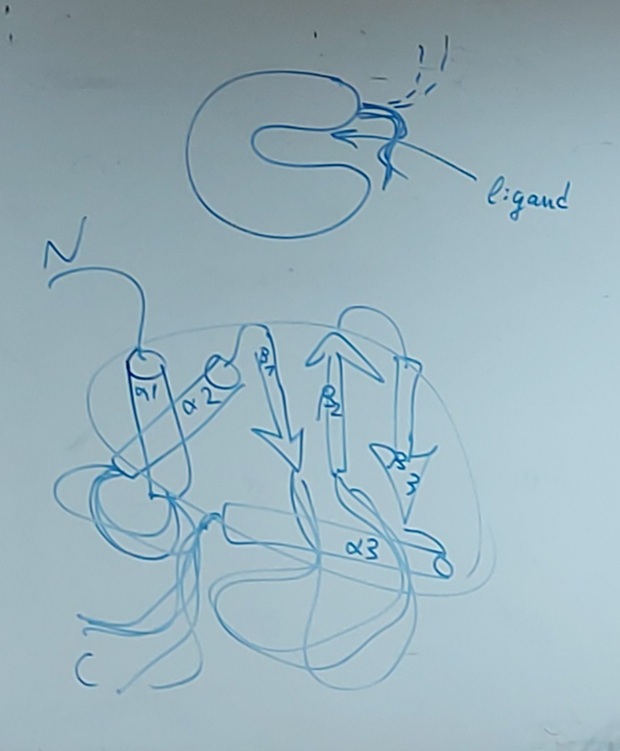 ligand
N
α1
α2
β1
β2
β3
α3
C